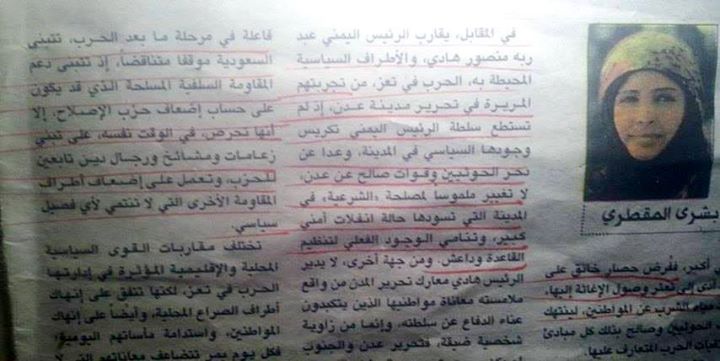 بشرى المقطري
أكبر، ففُرض حصار خانق على
الذي إلى تعثر وصول الإغاثة إليها،
الشرب عن المواطنين، لينتهك
الحوثيين وصالح بذلك كل مبادئ
الحرب المتعارف عليها.
في المقابل، يقارب الرئيس اليمني عبد
ربه منصور هادي، والأطراف السياسية
المحيطة به، الحرب في تعز، من تجربتهم
المريرة في تحرير مدينة عدن، إذ لم
تستطع سلطة الرئيس اليمني تكريس
وجودها السياسي في المدينة، وعدا عن
دحر الحوثيين وقوات صالح عن عدن،
لا تغيير ملموساً لمصلحة «الشرعية» في
المدينة التي تسودها حالة انفلات أمني
كبير، وتنامي الوجود الفعلي لتنظيم
القاعدة وداعش. ومن جهة أخرى، لا يدير
الرئيس هادي معارك تحرير المدن من واقع
ملامسته معاناة مواطنيها الذين يتكبدون
عناء الدفاع عن سلطته، وإنما من زاوية
شخصية ضيقة، فتحرير عدن والجنوب
فاعلة في مرحلة ما بعد الحرب، تتبنى
السعودية موقفاً متناقضاً، إذ تتبنى دعم
المقاومة السلفية المسلحة الذي قد يكون
على حساب إضعاف حزب الإصلاح، إلا
أنها تحرص، في الوقت نفسه، على تبني
زعامات ومشائخ ورجال دين تابعين
للحزب، وتعمل على إضعاف أطراف
المقاومة الأخرى التي لا تنتمي لأي فصيل
سياسي.
تختلف مقاربات القوى السياسية
المحلية والإقليمية المؤثرة في إدارتها
الحرب في تعز، لكنها تتفق على إنهاك
أطراف الصراع المحلية، وأيضاً على إنهاك
المواطنين، واستدامة مأساتهم اليومية،
فكل يوم يمر تتضاعف معاناتهم التي لا